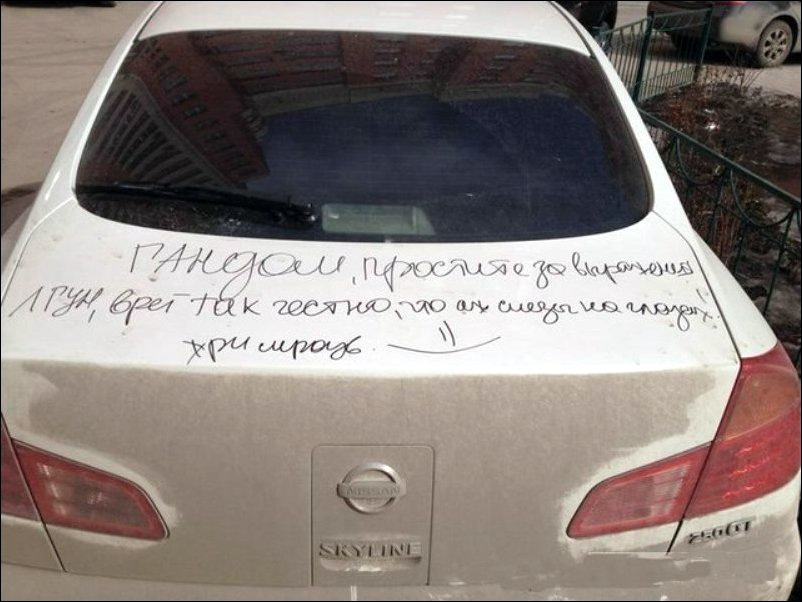 ГАНДОМ, простите за выражение
ЛГУН, врёт так честно, что аж слезы на глазах!
хри мразь. =)
NISSAN
SKYLINE
250GT